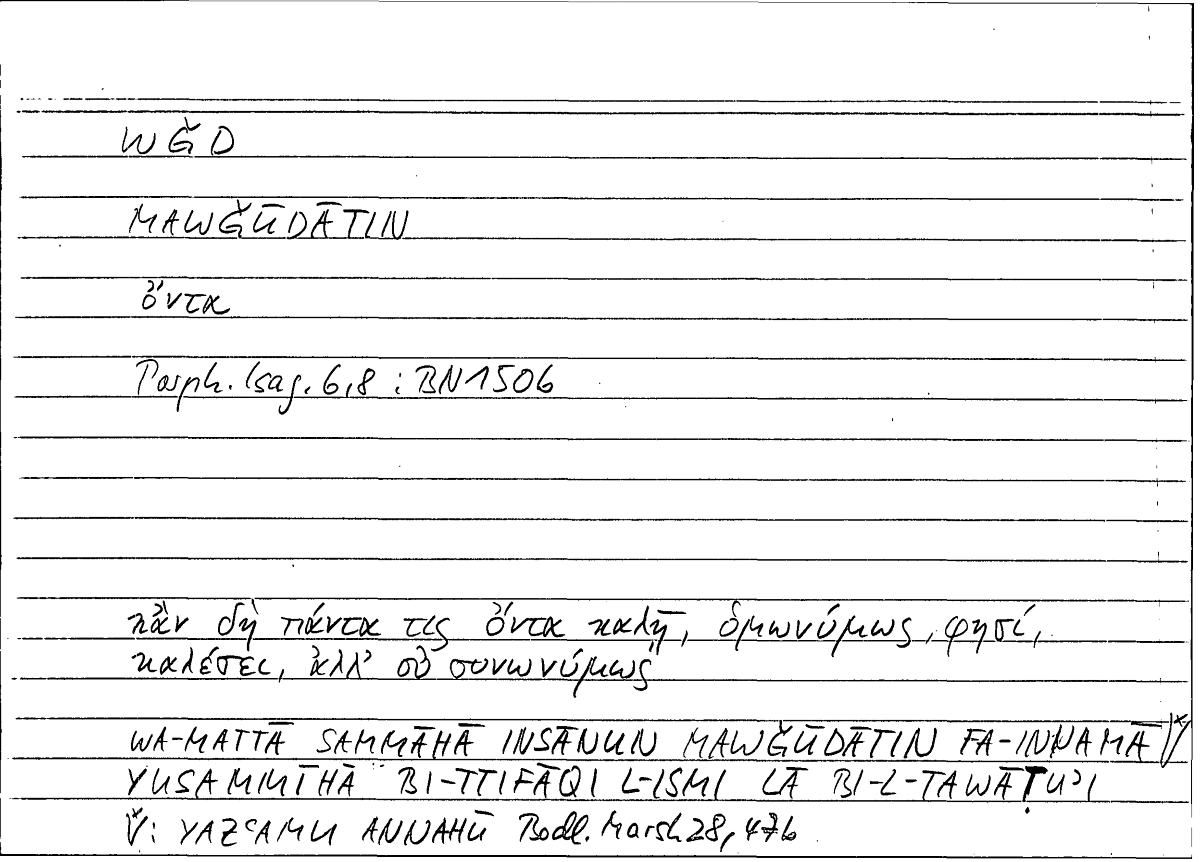 WǦD
MAWǦŪDĀTIN
ὄντα
Porph. Isag. 6,8 : BN 1506
κἂν δὴ πάντα τις ὄντα καλῇ, ὁμωνύμως, φησί,
καλέσει, ἀλλ' οὐ συνωνύμως
WA-MATTĀ SAMMĀHĀ INSĀNUN MAWǦŪDĀTIN FA-INNAMĀ
YUSAMMĪHĀ BI-TTIFĀQI L-ISMI LĀ BI-L-TAWĀṬUʾI
: YAZʿAMU ANNAHŪ Bodl. Marsh 28, 47b